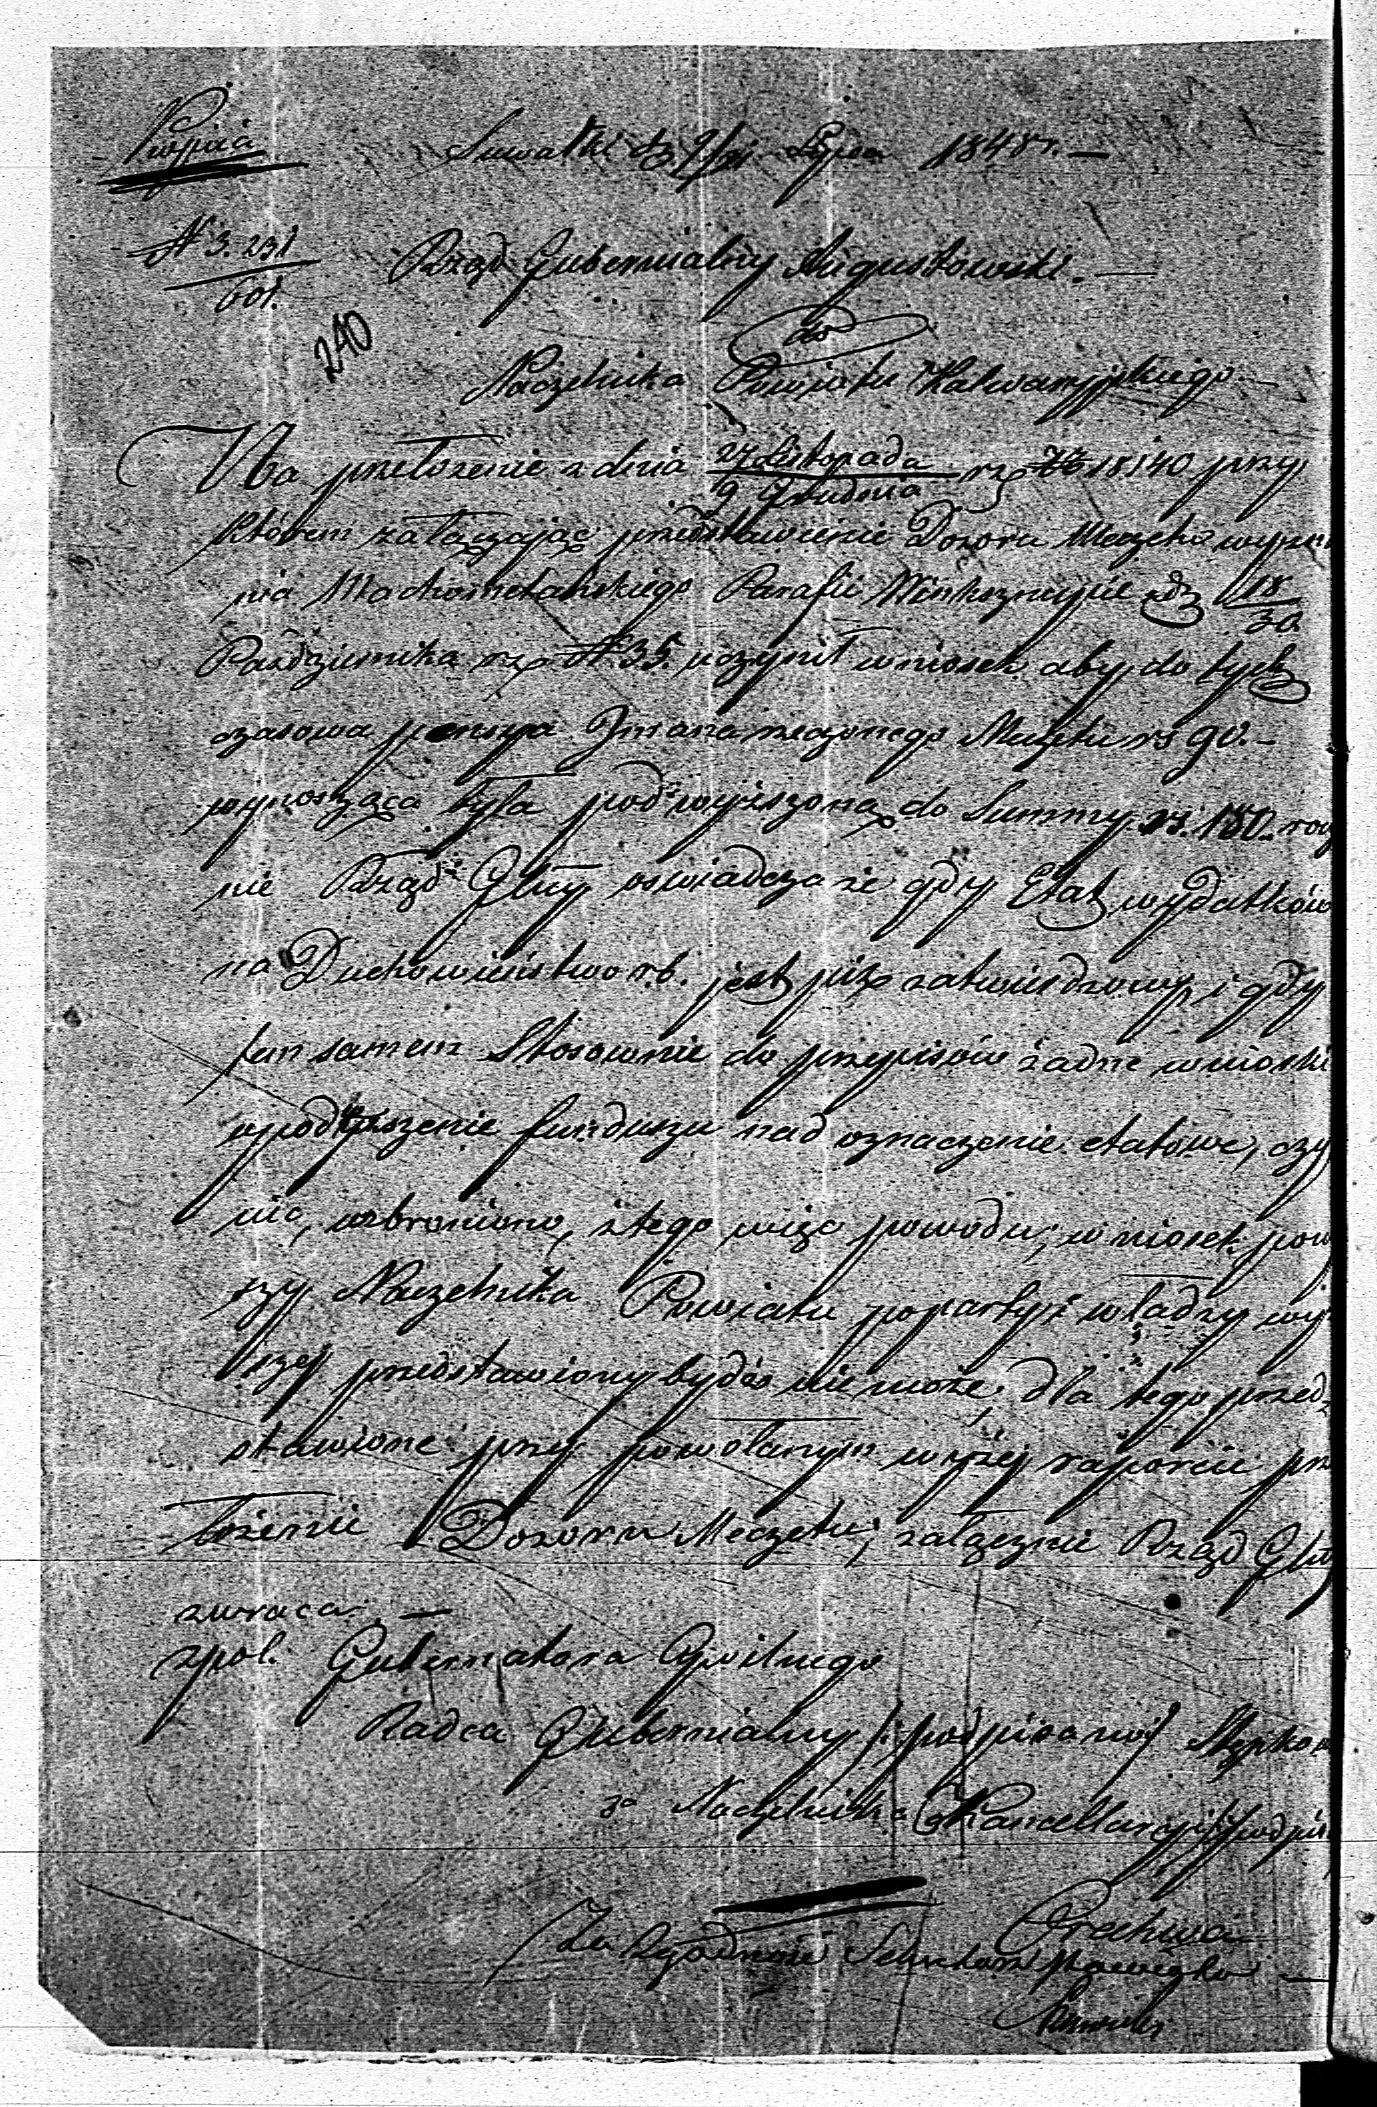 Kopija
Suwałki d. 9/21 Lipca 1848 r. —
N 3.231
601.
Rząd Gubernialny Augustowski. —
240
do
Naczelnika Powiatu Kalwaryjskiego —
Na przełożenie z dnia 27 Listopada / 9 Grudnia rz N 18140 przy
którem załączając przedstawienie Dozoru Meczetu wyzna
nia Machometańskiego Parafii Winksznupie d. 18/30
Października rz N 35. uczynił wniosek aby do tych
czasowa pensya Imana rzeczonego Meczetu rs 90. —
wynosząca była podwyższoną do Summy rs. 180. rocz
nie Rząd Glny oswiadcza że gdy Etat wydatków
na Duchowieństwo r.b. jest już zatwierdzony i gdy
tem samem Stosownie do przepisów żadne wnioski
o podwyższenie funduszu nad oznaczenie etatowe, czy
nić, wzbroniono, z tego więc powodu, wniosek pow
szy Naczelnika Powiatu poparty władzy wyż
szej przedstawiony bydź nie może, dla tego przed
stawione przy powołanym wyżej raporcie prze
łożenie Dozoru Meczetu, załącznie Rząd Glny
zwraca. —
z pol. Gubernatora Cywilnego
Radca Gubernialny /: podpisano :/
za Naczelnika Kancellaryi /: podpis
Za zgodność Sekretarz Powiatu —